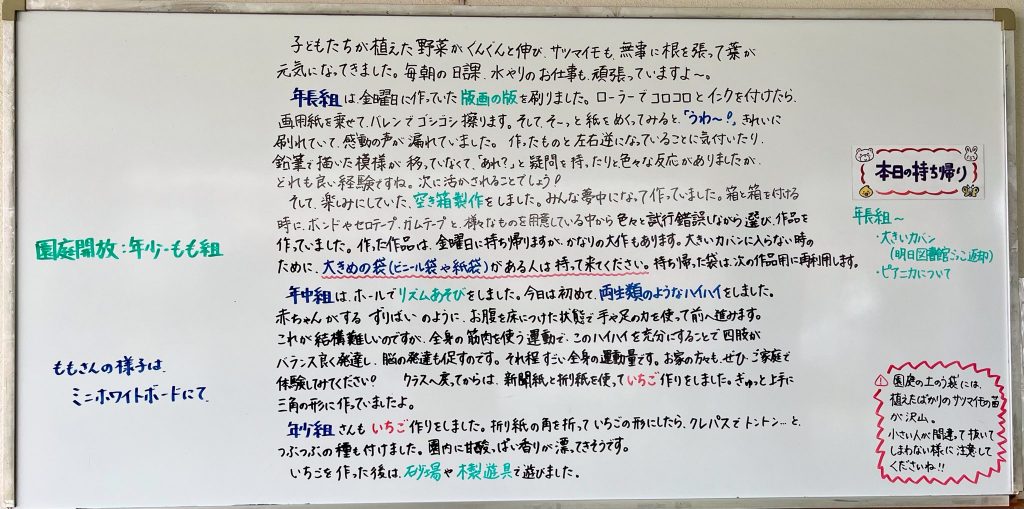 子どもたちが植えた野菜がぐんぐんと伸び、サツマイモも、無事に根を張って葉が
元気になってきました。毎朝の日課、水やりのお仕事も、頑張っていますよ～。
年長組は、金曜日に作っていた版画の版を刷りました。ローラーでコロコロとインクを付けたら、
画用紙を乗せて、バレンでゴシゴシ擦ります。そして、そーっと紙をめくってみると、「うわ～!」。きれいに
刷れていて、感動の声が漏れていました。作ったものと左右逆になっていることに気付いたり、
鉛筆で描いた模様が移っていなくて、「あれ?」と疑問を持ったりと色々な反応がありましたが、
どれも良い経験ですね。次に活かされることでしょう!
そして、楽しみにしていた、空き箱製作をしました。みんな夢中になって作っていました。箱と箱を付ける
時に、ボンドやセロテープ、ガムテープと、様々なものを用意している中から色々と試行錯誤しながら選び、作品を
作っていました。作った作品は、金曜日に持ち帰りますが、かなりの大作もあります。大きいカバンに入らない時の
ために、大きめの袋(ビニール袋や紙袋)がある人は持って来てください。持ち帰った袋は、次の作品用に再利用します。
年中組は、ホールでリズムあそびをしました。今日は初めて、両生類のようなハイハイをしました。
赤ちゃんがする ずりばいのように、お腹を床につけた状態で手や足の力を使って前へ進みます。
これが結構難しいのですが、全身の筋肉を使う運動で、このハイハイを充分にすることで四肢が
バランス良く発達し、脳の発達も促すのです。それ程すごい全身の運動量です。お家の方も、ぜひご家庭で
体験してみてください! クラスへ戻ってからは、新聞紙と折り紙を使っていちご作りをしました。ぎゅっと上手に
三角の形に作っていましたよ。
年少組さんもいちご作りをしました。折り紙の角を折っていちごの形にしたら、クレパスでトントン…と、
つぶつぶの種も付けました。園内に甘酸っぱい香りが漂ってきそうです。
いちごを作った後は、砂場や木製遊具で遊びました。
園庭開放:年少・もも組
ももさんの様子は、
ミニホワイトボードにて、
本日の持ち帰り
年長組～
・大きいカバン
(明日図書館ごっこ返却)
・ピアニカについて
! 園庭の土の袋には、
植えたばかりのサツマイモの苗
が沢山。
小さい人が間違って抜いて
しまわない様に注意して
くださいね!!